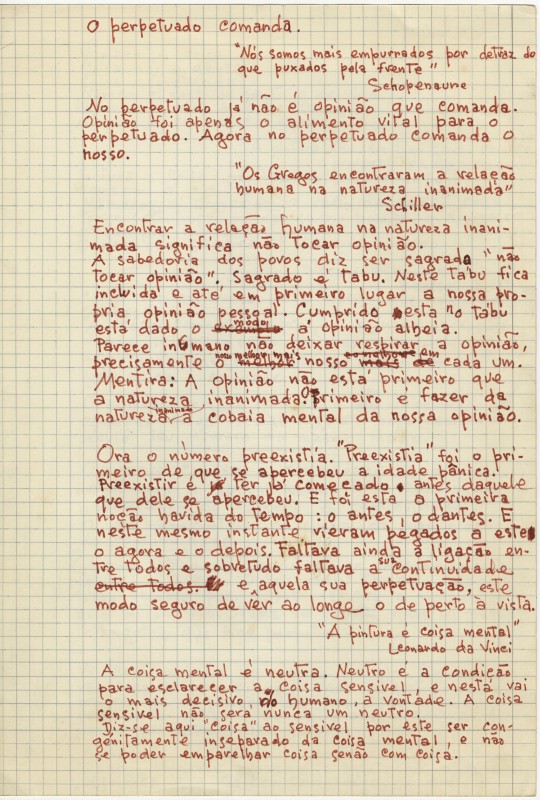 O perpetuado comanda.
"Nós somos mais empurrados por detraz do
que puxados pela frente"
Schopenaure
No perpetuado já não é opinião que comanda.
Opinião foi apenas o alimento vital para o
perpetuado. Agora no perpetuado comanda o
nosso.
"Os Gregos encontraram a relação
humana na natureza inanimada"
Schiller
Encontrar a relação humana na natureza inani-
mada significa não tocar opinião.
A sabedoria dos povos diz ser sagrada "não
tocar opinião". Sagrado é tabu. Neste tabu fica
incluida e até em primeiro lugar a nossa pro-
pria opinião pessoal. Cumprido esta no tabu
modo
está dado o exemplo à opinião alheia.
Parece inumano não deixar respirar a opinião,
num melhor, mais em
precisamente o melhor nosso mais de cada um.
Mentira: A opinião não está primeiro que
a natureza inanimada. O primeiro é fazer da
inanimada
natureza a cobaia mental da nossa opinião.
Ora o número preexistia. "Preexistia" foi o pri-
meiro de que se apercebeu a idade pânica.
Preexistir é ter já começado antes daquele
que dele se apercebeu. E foi esta a primeira
noção havida do tempo: o antes, o dantes. E
neste mesmo instante vieram pegados a este
o agora e o depois. Faltava ainda a ligação en-
sua
tre todos e sobretudo faltava a continuidade
entre todos. e aquela sua perpetuação, este
modo seguro de vêr ao longe o de perto à vista.
"A pintura é coisa mental"
Leonardo da Vinci
A coisa mental é neutra. Neutro é a condição
para esclarecer a coisa sensivel, e nesta vai
o mais decisivo do humano, a vontade. A coisa
sensivel não será nunca um neutro.
Diz-se aqui "coisa" ao sensivel por este ser con-
génitamente inseparado da coisa mental, e não
se poder emparelhar coisa senão com coisa.